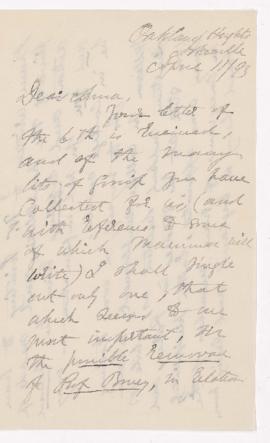 Oakland Heights
Asheville
April 11/93
Dear Anna,
Your letter of
the 6th is received,
and of the many
bits of gossip you have
collected for us (and
with reference to some
of which Mamma will
write) I shall single
out only one, that
which seems to me
most important, viz
the possible removal
of Prof. in relation